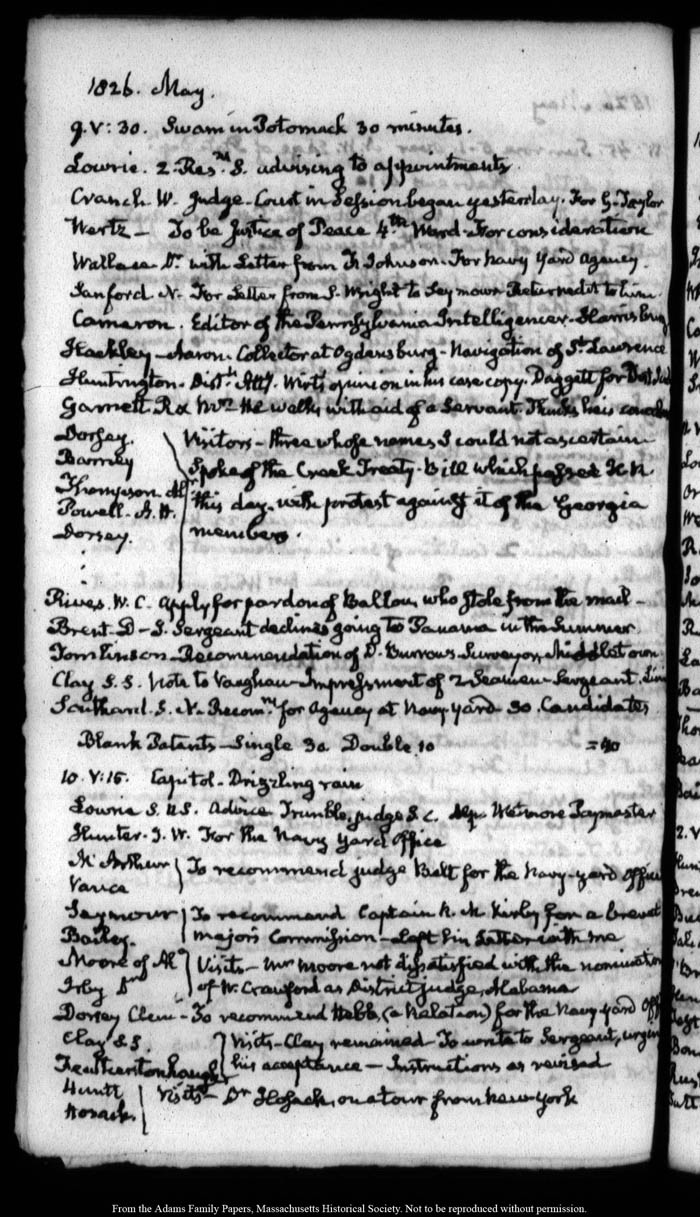 1826. May.
9. V: 30. Swam in Potomack 30 minutes.
Lowrie. 2. Resns. S. advising to appointments
Cranch W. Judge. Court in Session began yesterday. For G. Taylor
Wertz — To be Justice of Peace 4th Ward. For consideration
Wallace Dr. with Letter from F. Johnson. For Navy Yard Agency.
Sanford. N. For Letter from S. Wright to Seymour Returned it to him.
Cameron. Editor of the Pennsylvania Intelligencer. Harrisburg
Hackley — Aaron. Collector at Ogdensburg — Navigation of St. Lawrence
Huntington. Distt. Atty. Wirt's opinion in his case copy. Daggett for Dist.
Garnett. R & Mrs. He walks with aid of a Servant. Thinks his
Dorsey. Visitors — three whose names I could not ascertain
Barney Spoke of the Creek Treaty. Bill which passed H. R.
Thompson this day. with protest against it of the Georgia
Powell. members.
Dorsey.
Rives. W. C. apply for pardon of Ballou, who stole from the mail —
Brent. D — S. Sergeant declines going to Panama in the Summer
Tomlinson — Recommendation of D. Burrows Surveyor, Middletown
Clay S. S. Note to Vaughan — Impressment of 2 Seamen — Sergeant.
Southard. S. N. Recomn. for Agency at Navy Yard 30 Candidates
Blank Patents — Single 30 Double. 10 = 40
10. V: 15. Capitol. Drizzling rain
Lowrie S. U S. Advice Trimble, judge S. C. Wetmore Paymaster
Hunter. J. W. For the Navy Yard Office
McArthur To recommend judge Belt for the Navy-yard office
Vance
Seymour To recommend Captain R. M. Kirby for a brevet
Bailey. major's Commission — Left his Letter with me
Moore of Al Visits — Mr Moore not dissatisfied with the nomination
Irby Do of W. Crawford as District judge, Alabama
Dorsey Clem — To recommend Webb, (a Relation) for the Navy-yard Off
Clay S. S. Visits — Clay remained — To write to Sergeant, urging
Featherstonhaugh his acceptance — Instructions as revised
Huntt Visits — Dr Hosack, on a tour from New-York
Hosack.
From the Adams Family Papers, Massachusetts Historical Society. Not to be reproduced without permission.